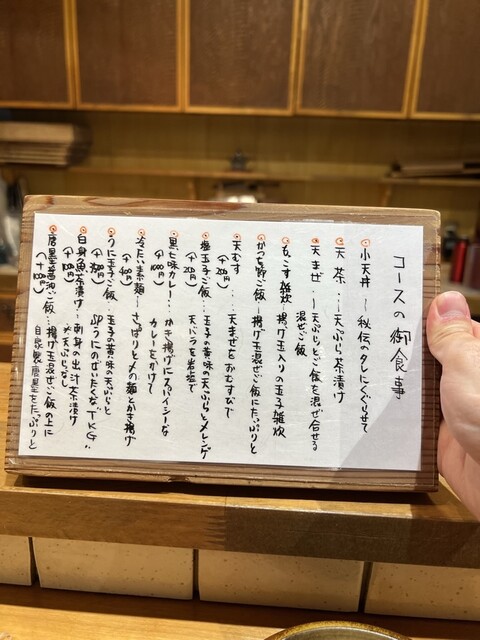 コースの御食事
小天丼 ― 秘伝のタレにくぐらせて
天茶・・・ ― 天ぷら茶漬け
天まぜ ― 天ぷらとご飯を混ぜ合せる
混ぜご飯
もこす雑炊 揚げ玉入りの玉子雑炊
かつを節ご飯 ― 揚げ玉混ぜご飯にたっぷりと
天むす・・・ 天まぜをおむすびで
(+200円)
塩玉子ご飯・・・玉子の黄味の天ぷらとメレンゲ
(+200円) 天バラを岩塩で
黒七味カレー・・・かき揚げにスパイシーな
(+1000円) カレーをかけて
冷たい素麺 ― さっぱりと〆の麺とかき揚げ
(+400円)
うに玉子ご飯・・・玉子の黄味の天ぷらと
生うにのぜいたくなTKG
白身魚茶漬け・・・刺身の出汁茶漬け
※天ぷらなし
唐墨醤油ご飯・・・揚げ玉混ぜご飯の上に
自家製唐墨をたっぷりと